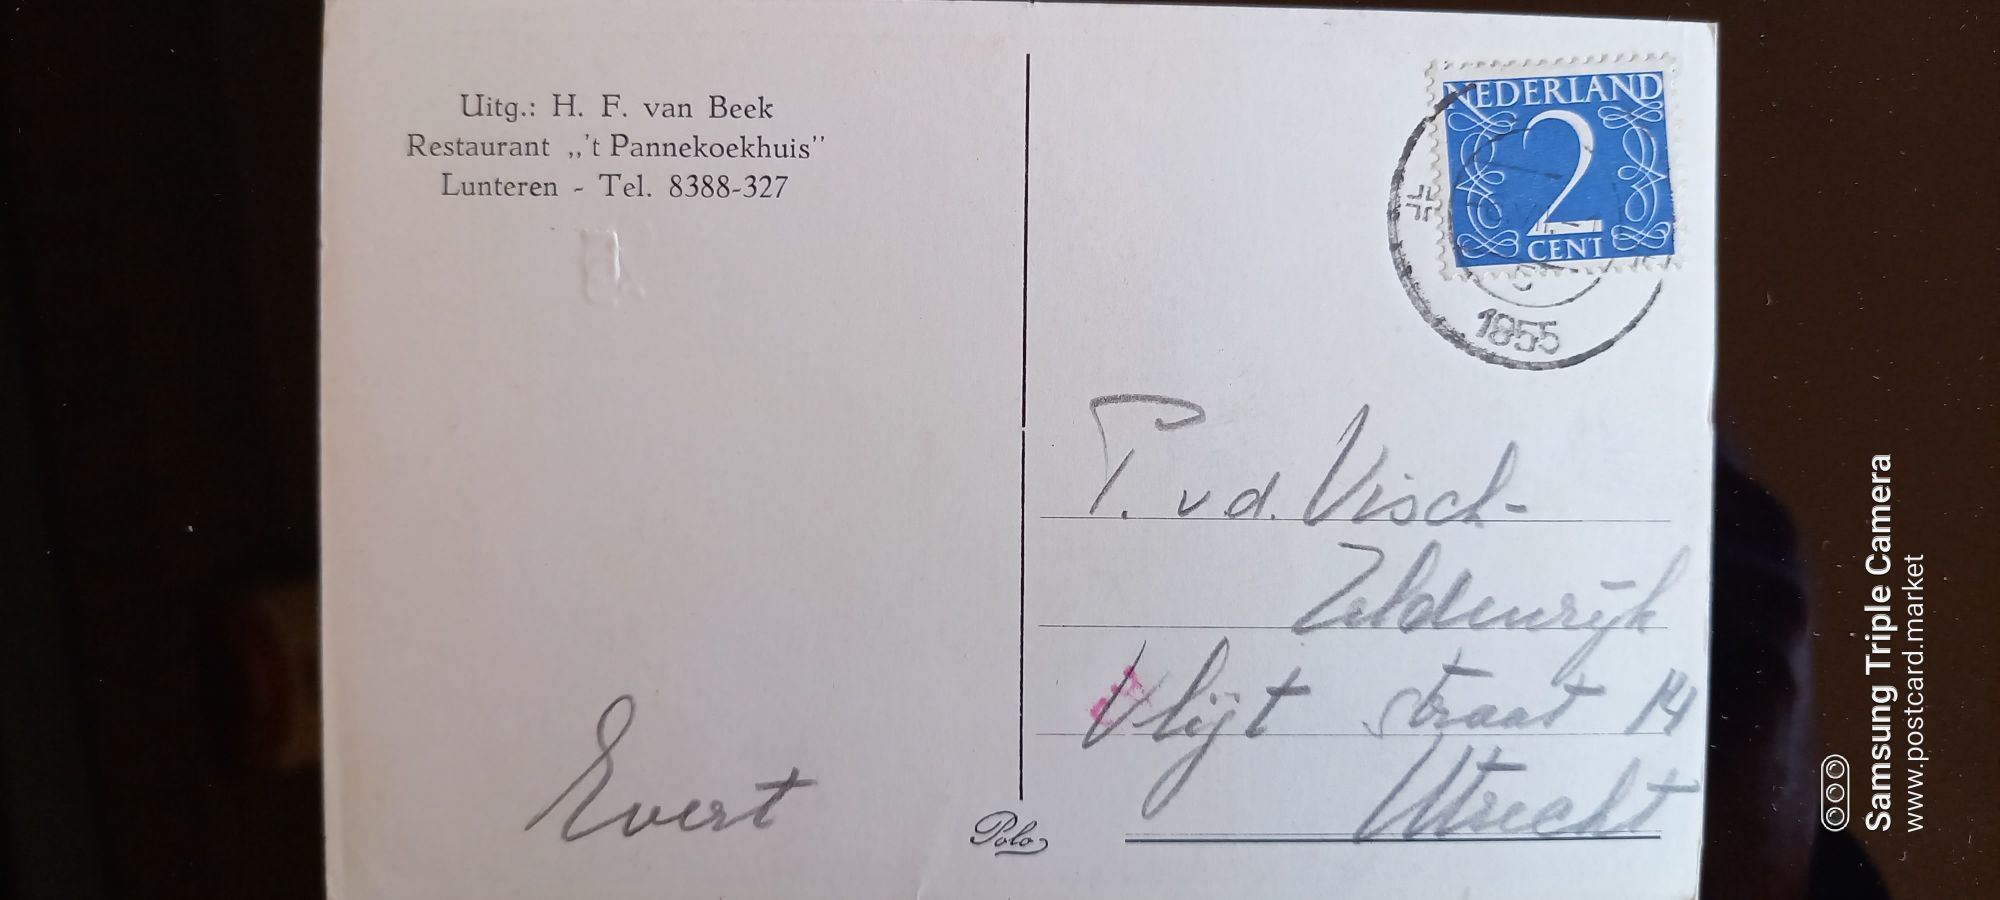 Uitg.: H. F. van Beek
Restaurant „'t Pannekoekhuis”
Lunteren - Tel. 8388-327
NEDERLAND
2
CENT
1955
T. v.d. Visch-
Zeldenrijk
Vlijt straat 14
Utrecht
Evert
Polo
Samsung Triple Camera
www.postcard.market